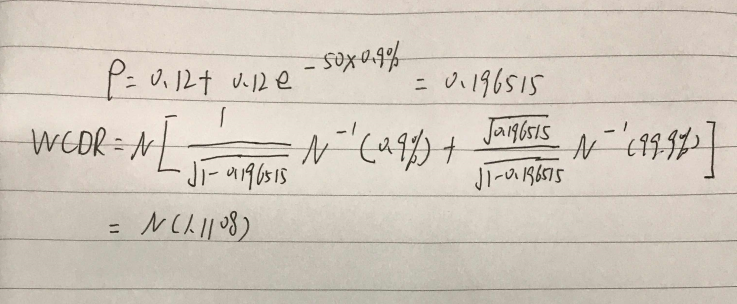 ρ = 0.12 + 0.12 e^{-50×0.9%} = 0.196515
WCDR = N[ \frac{1}{\sqrt{1-0.196515}} N^{-1}(0.9%) + \frac{\sqrt{0.196515}}{\sqrt{1-0.196515}} N^{-1}(99.9%) ]
= N(1.1108)